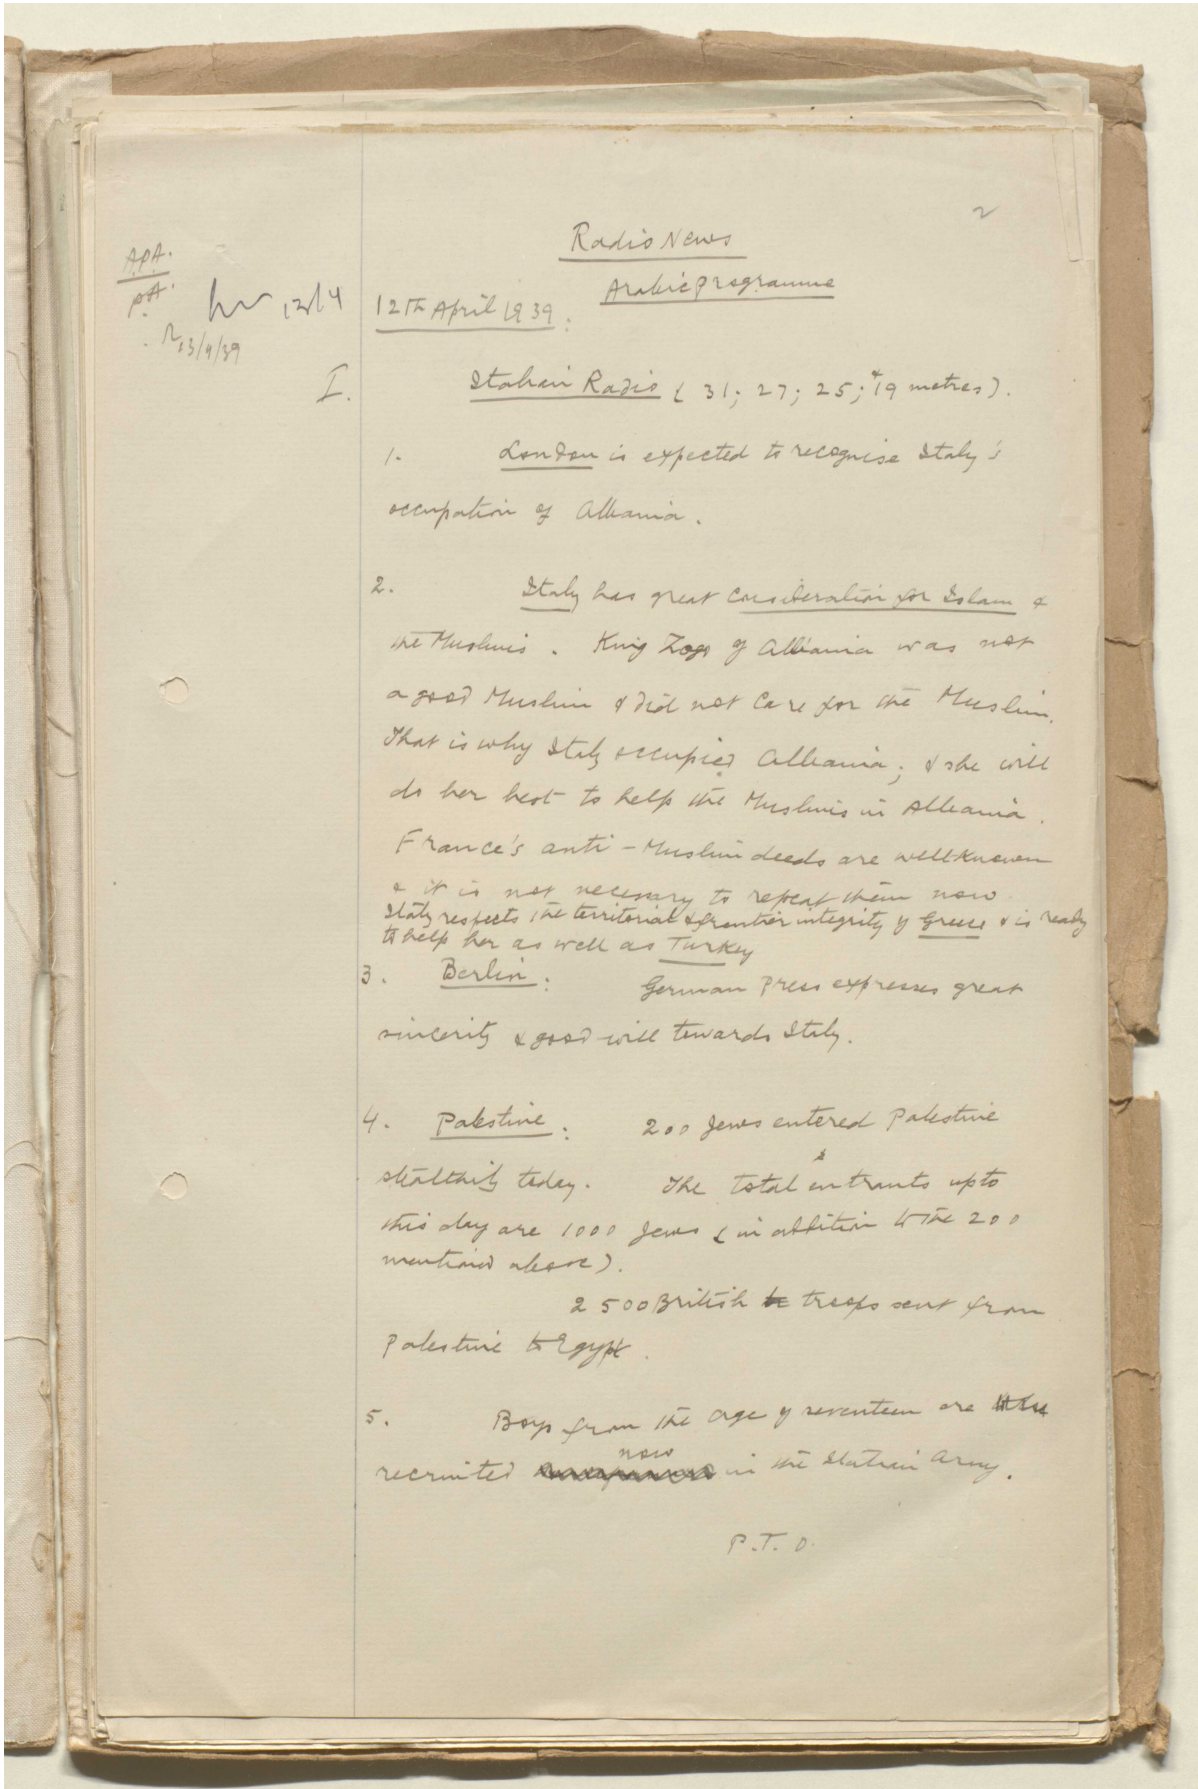 2
Radio News
Arabic programme
A.P.A.
P.A.
12/4
13/4/39
12th April 1939:
I. Italian Radio (31; 27; 25; & 19 metres).
1. London is expected to recognise Italy's
occupation of Albania.
2. Italy has great consideration for Islam &
the Muslims. King Zogo of Albania was not
a good Muslim & did not care for the Muslim.
That is why Italy occupied Albania; & she will
do her best to help the Muslims in Albania.
France's anti-Muslim deeds are wellknown
& it is not necessary to repeat them now.
Italy respects the territorial & frontier integrity of Greece & is ready
to help her as well as Turkey
3. Berlin: German Press expresses great
sincerity & good-will towards Italy.
4. Palestine: 200 Jews entered Palestine
stealthily today. The total entrants upto
this day are 1000 Jews (in addition to the 200
mentioned above).
2500 British troops sent from
Palestine to Egypt.
5. Boys from the age of seventeen are
recruited now in the Italian Army.
P.T.O.